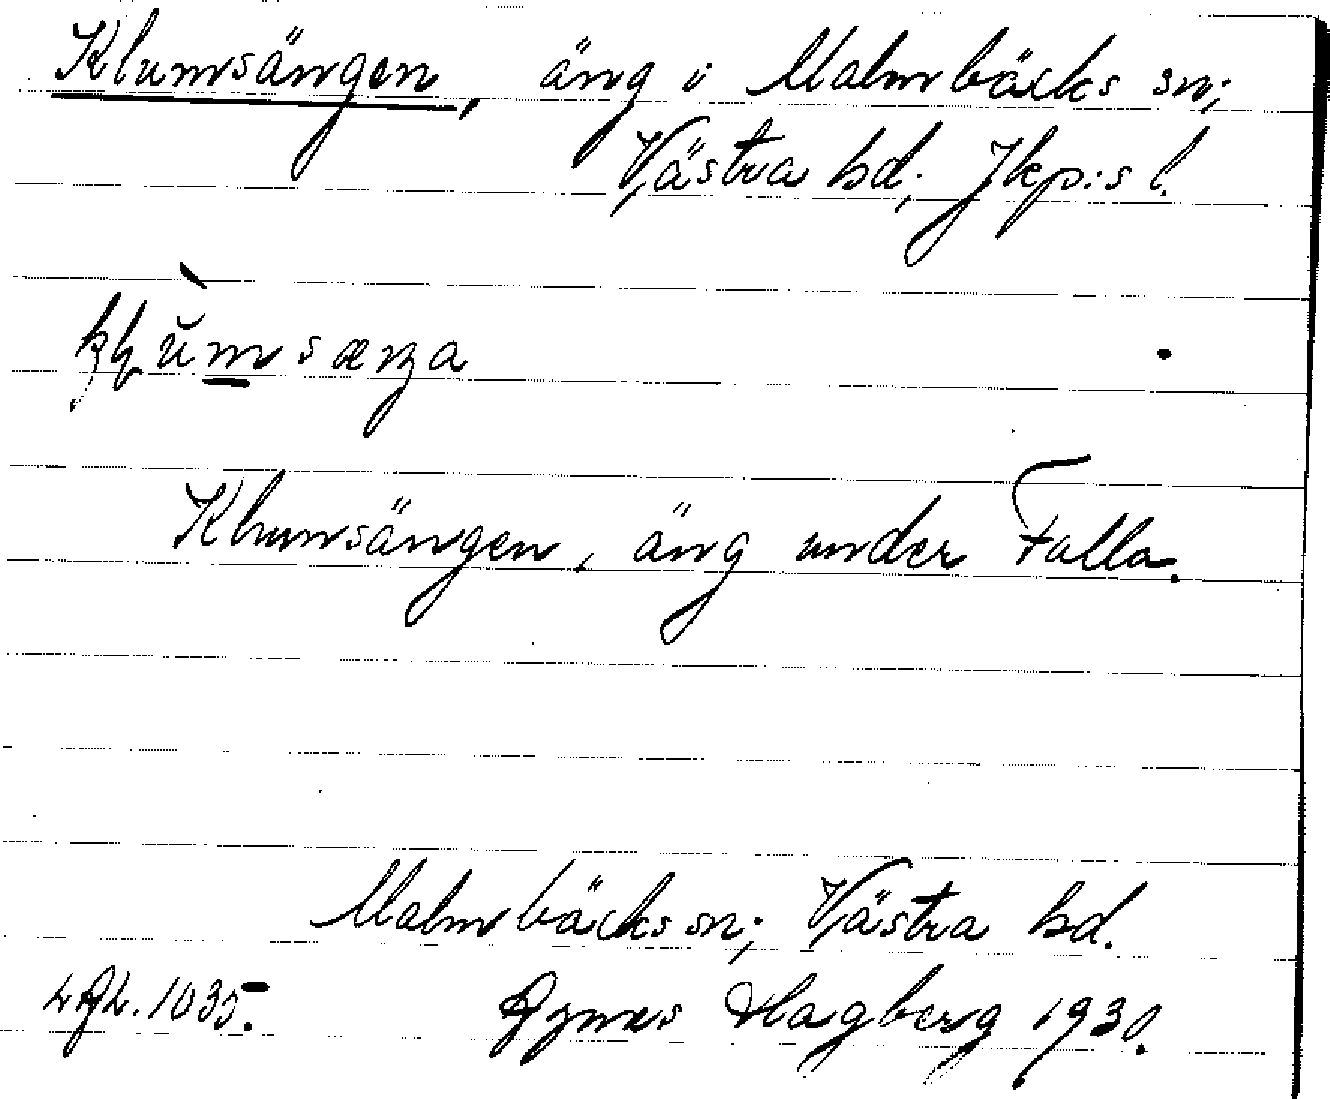 Klumsängen, äng i Malmbäcks sn;
Västra hd; Jkp:s l.
Klumsängen, äng under Falla.
Malmbäcks sn; Västra hd.
1035. Agnes Hagberg 1930.